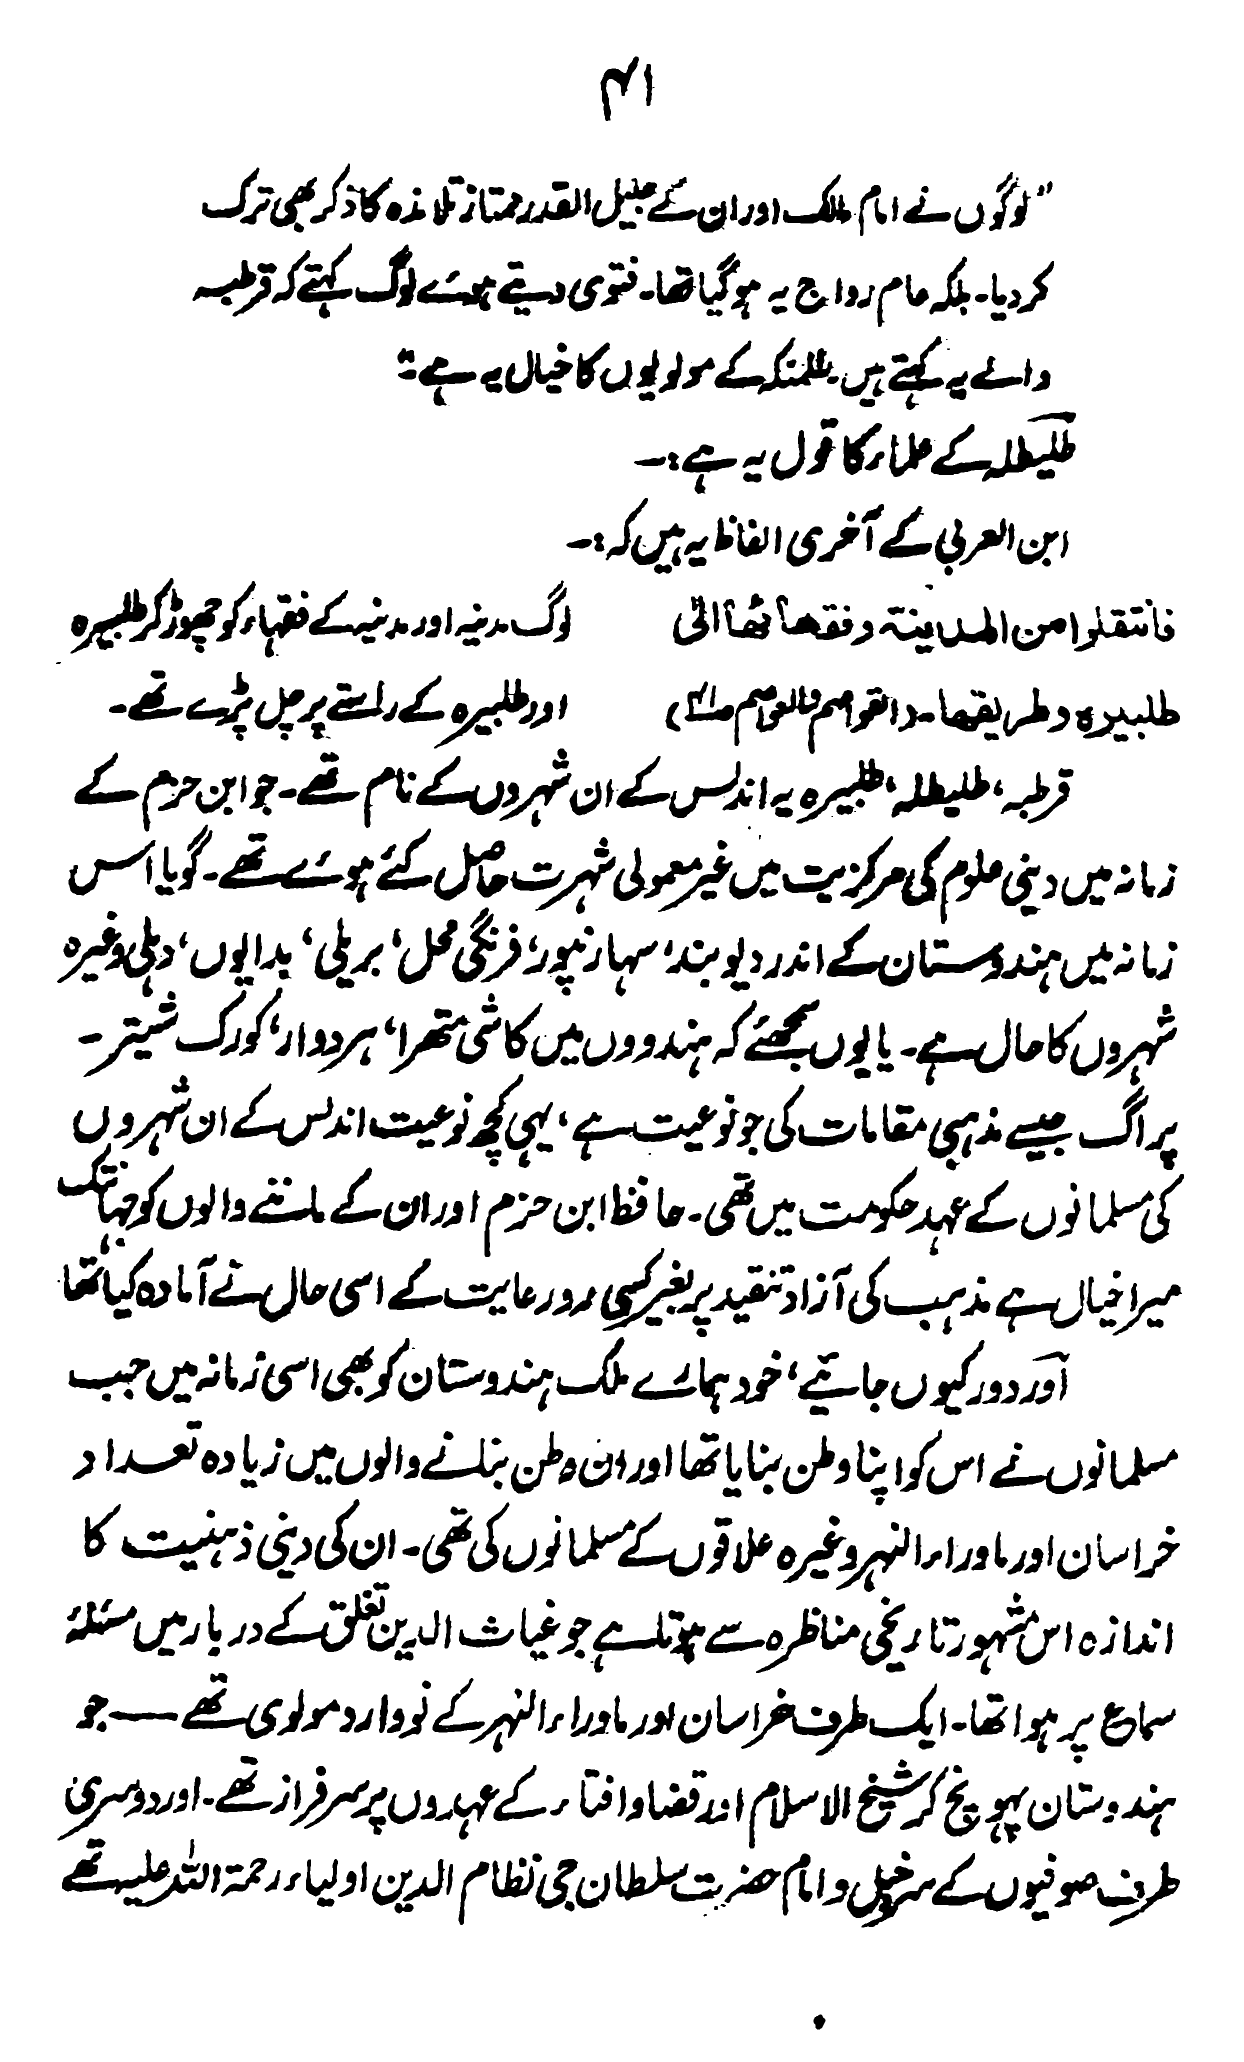 ۴۱
"لوگوں نے امام مالک اور ان کے جلیل القدر ممتاز تلامذہ کا ذکر بھی ترک
کر دیا۔ بلکہ عام رواج یہ ہو گیا تھا۔ فتوی دیتے ہوئے لوگ کہتے کہ قرطبہ
والے یہ کہتے ہیں۔ طلمنکہ کے مولویوں کا خیال یہ ہے"۔
طلیطلہ کے علماء کا قول یہ ہے:۔
ابن العربی کے آخری الفاظ یہ ہیں کہ:۔
فانتقلوا من المدینۃ وفقھائھا الی
لوگ مدینہ اور مدینہ کے فقہاء کو چھوڑ کر طلبیرہ
طلبیرہ وطریقھا۔ (القواصم والعواصم ص۴۱)
اور طلبیرہ کے راستے پر چل پڑے تھے۔
قرطبہ، طلیطلہ، طلبیرہ یہ اندلس کے ان شہروں کے نام تھے۔ جو ابن حزم کے
زمانہ میں دینی علوم کی مرکزیت میں غیر معمولی شہرت حاصل کئے ہوئے تھے۔ گویا اس
زمانہ میں ہندوستان کے اندر دیوبند، سہارنپور، فرنگی محل، بریلی، بدایوں، دہلی وغیرہ
شہروں کا حال ہے۔ یا یوں سمجھئے کہ ہندووں میں کاشی متھرا، ہردوار، کورک شیتر۔
پراگ جیسے مذہبی مقامات کی جو نوعیت ہے، یہی کچھ نوعیت اندلس کے ان شہروں
کی مسلمانوں کے عہد حکومت میں تھی۔ حافظ ابن حزم اور ان کے ماننے والوں کو جہانتک
میرا خیال ہے مذہب کی آزاد تنقید پر بغیر کسی مرورعایت کے اسی حال نے آمادہ کیا تھا
اور دور کیوں جائیے، خود ہمارے ملک ہندوستان کو بھی اسی زمانہ میں جب
مسلمانوں نے اس کو اپنا وطن بنایا تھا اور ان وطن بنانے والوں میں زیادہ تعداد
خراسان اور ماوراء النہر وغیرہ علاقوں کے مسلمانوں کی تھی۔ ان کی دینی ذہنیت کا
اندازہ اس مشہور تاریخی مناظرہ سے ہوتا ہے جو غیاث الدین تغلق کے دربار میں مسئلۂ
سماع پر ہوا تھا۔ ایک طرف خراسان اور ماوراء النہر کے نووارد مولوی تھے — جو
ہندوستان پہونچ کر شیخ الاسلام اور قضا و افتاء کے عہدوں پر سرفراز تھے۔ اور دوسری
طرف صوفیوں کے سرخیل و امام حضرت سلطان جی نظام الدین اولیاء رحمۃ اللہ علیہ تھے